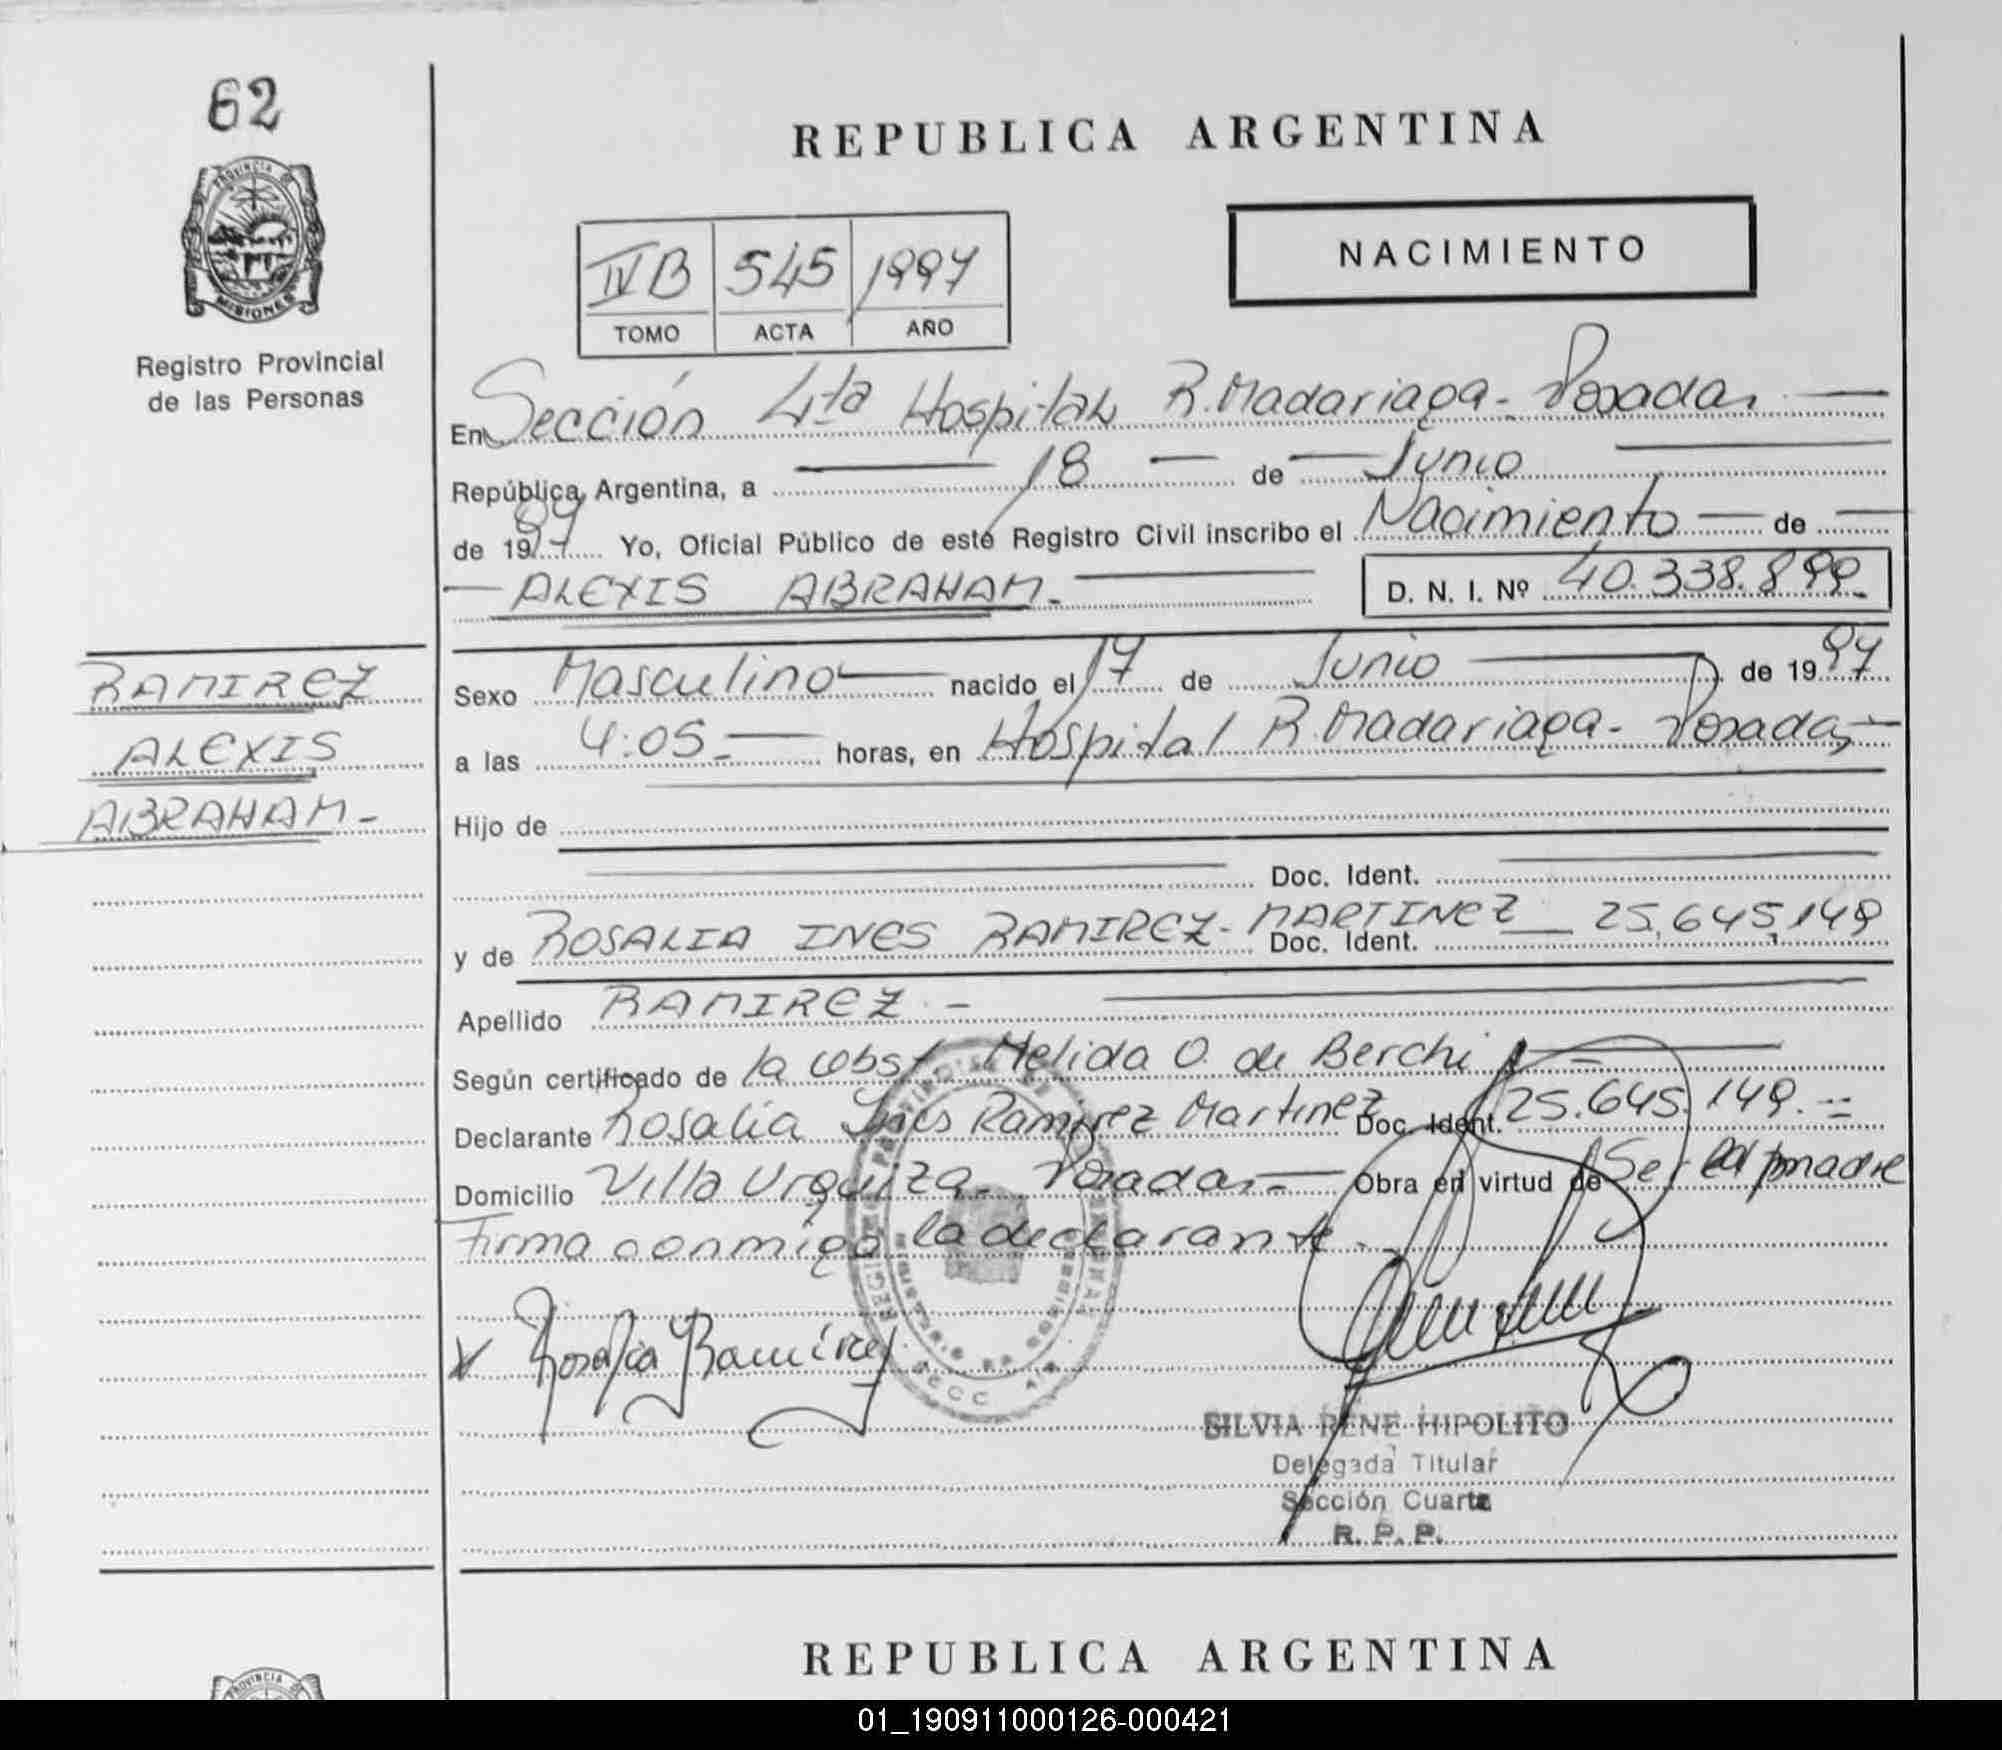 62
PROVINCIA DE
MISIONES
Registro Provincial
de las Personas
REPUBLICA ARGENTINA
NACIMIENTO
IVB 545 1997
TOMO ACTA AÑO
En Sección 4ta Hospital R. Madariaga - Posadas.
República Argentina, a 18 de Junio
de 1997 Yo, Oficial Público de este Registro Civil inscribo el Nacimiento de
ALEXIS ABRAHAM.
D. N. I. Nº 40.338.899.
RAMIREZ
ALEXIS
ABRAHAM -
Sexo Masculino nacido el 17 de Junio de 1997
a las 4:05. horas, en Hospital R. Madariaga - Posadas
Hijo de
Doc. Ident.
y de ROSALIA INES RAMIREZ - MARTINEZ Doc. Ident. 25.645.149
Apellido RAMIREZ. -
Según certificado de la Obst Melida O. de Berchi
Declarante Rosalia Ines Ramirez Martinez Doc. Ident. 25.645.149. =
Domicilio Villa Urquiza - Posadas. - Obra en virtud de Ser madre
Firma conmigo la declarante.
Rosalia Ramirez
SILVIA RENE HIPOLITO
Delegada Titular
Sección Cuarta
R. P. P.
REPUBLICA ARGENTINA
PROVINCIA DE
01_190911000126-000421